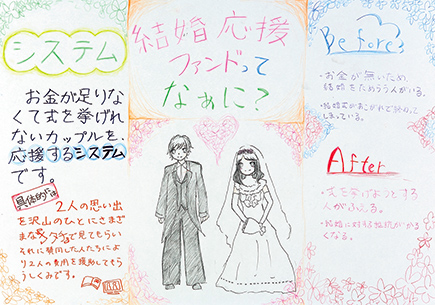 システム
お金が足りな
くて式を挙げれ
ないカップルを、
応援するシステム
です。
具体的には
2人の思い出
を沢山のひとにさまざ
まな
で見てもらい
それに賛同した人たちによ
り2人の費用を援助してもら
うしくみです。
結婚応援
ファンドって
なぁに?
Before
・お金が無いため、
結婚をためらう人がいる。
・結婚式があこがれで終わって
しまっている。
After
・式を挙げようとする
人がふえる。
・結婚に対する抵抗がかる
くなる。